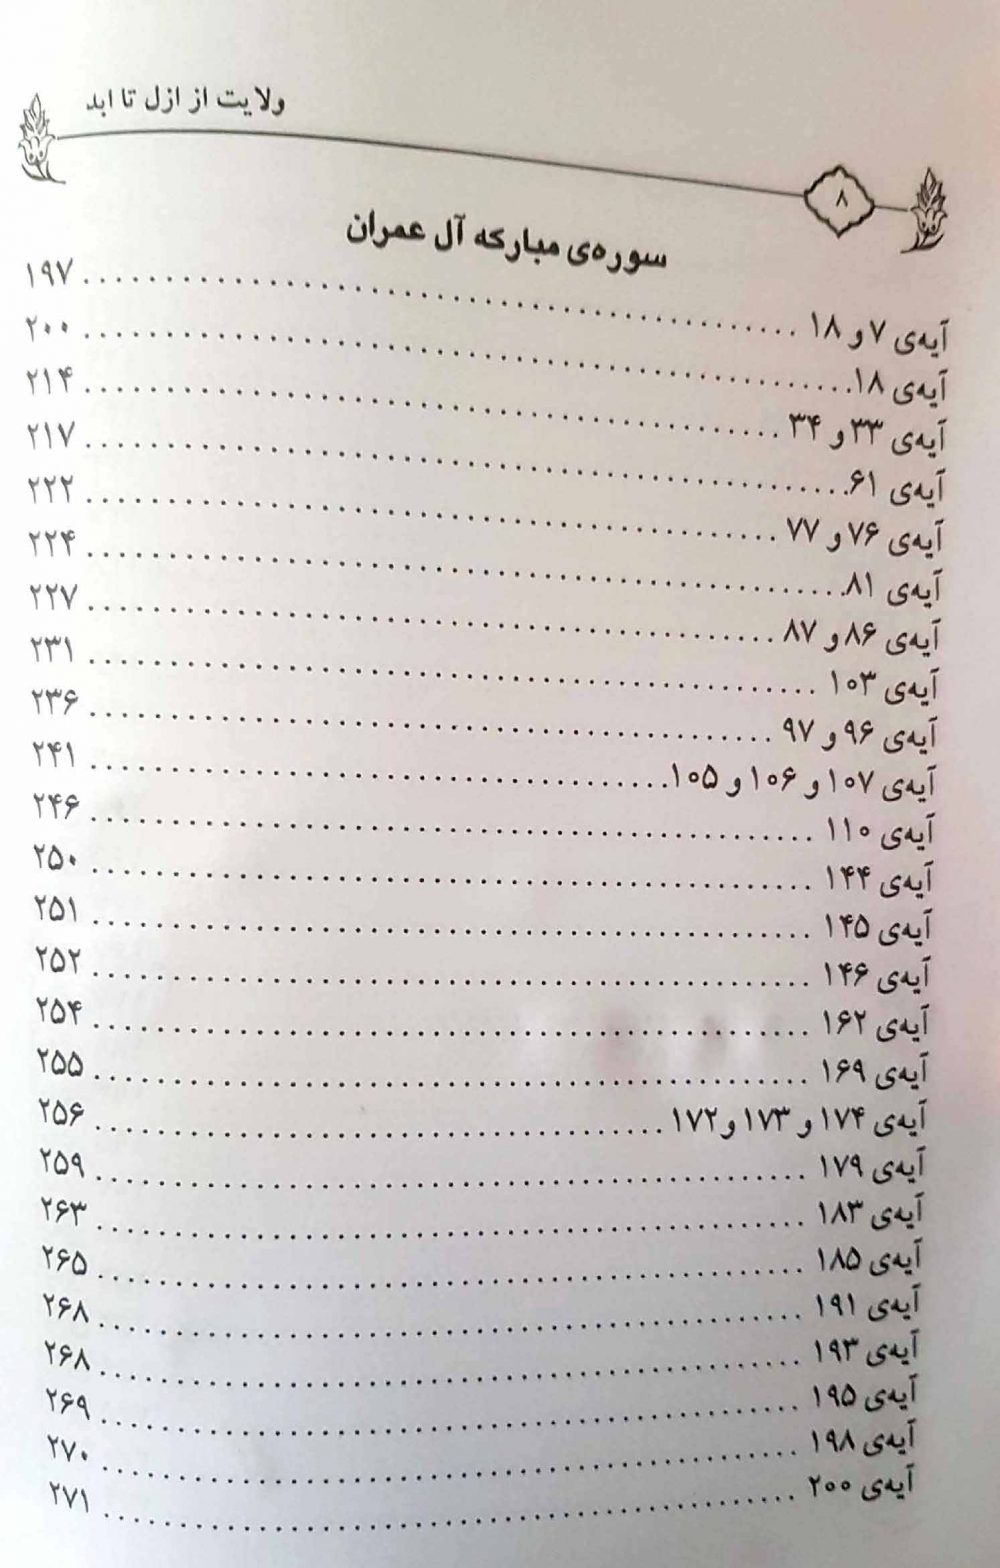 ولایت از ازل تا ابد
۸
سوره‌ی مبارکه آل عمران
آیه‌ی ۷ و ۱۸ ........ ۱۹۷
آیه‌ی ۱۸ ........ ۲۰۰
آیه‌ی ۳۳ و ۳۴ ........ ۲۱۴
آیه‌ی ۶۱ ........ ۲۱۷
آیه‌ی ۷۶ و ۷۷ ........ ۲۲۲
آیه‌ی ۸۱ ........ ۲۲۴
آیه‌ی ۸۶ و ۸۷ ........ ۲۲۷
آیه‌ی ۱۰۳ ........ ۲۳۱
آیه‌ی ۹۶ و ۹۷ ........ ۲۳۶
آیه‌ی ۱۰۷ و ۱۰۶ و ۱۰۵ ........ ۲۴۱
آیه‌ی ۱۱۰ ........ ۲۴۶
آیه‌ی ۱۴۴ ........ ۲۵۰
آیه‌ی ۱۴۵ ........ ۲۵۱
آیه‌ی ۱۴۶ ........ ۲۵۲
آیه‌ی ۱۶۲ ........ ۲۵۴
آیه‌ی ۱۶۹ ........ ۲۵۵
آیه‌ی ۱۷۴ و ۱۷۳ و ۱۷۲ ........ ۲۵۶
آیه‌ی ۱۷۹ ........ ۲۵۹
آیه‌ی ۱۸۳ ........ ۲۶۳
آیه‌ی ۱۸۵ ........ ۲۶۵
آیه‌ی ۱۹۱ ........ ۲۶۸
آیه‌ی ۱۹۳ ........ ۲۶۸
آیه‌ی ۱۹۵ ........ ۲۶۹
آیه‌ی ۱۹۸ ........ ۲۷۰
آیه‌ی ۲۰۰ ........ ۲۷۱